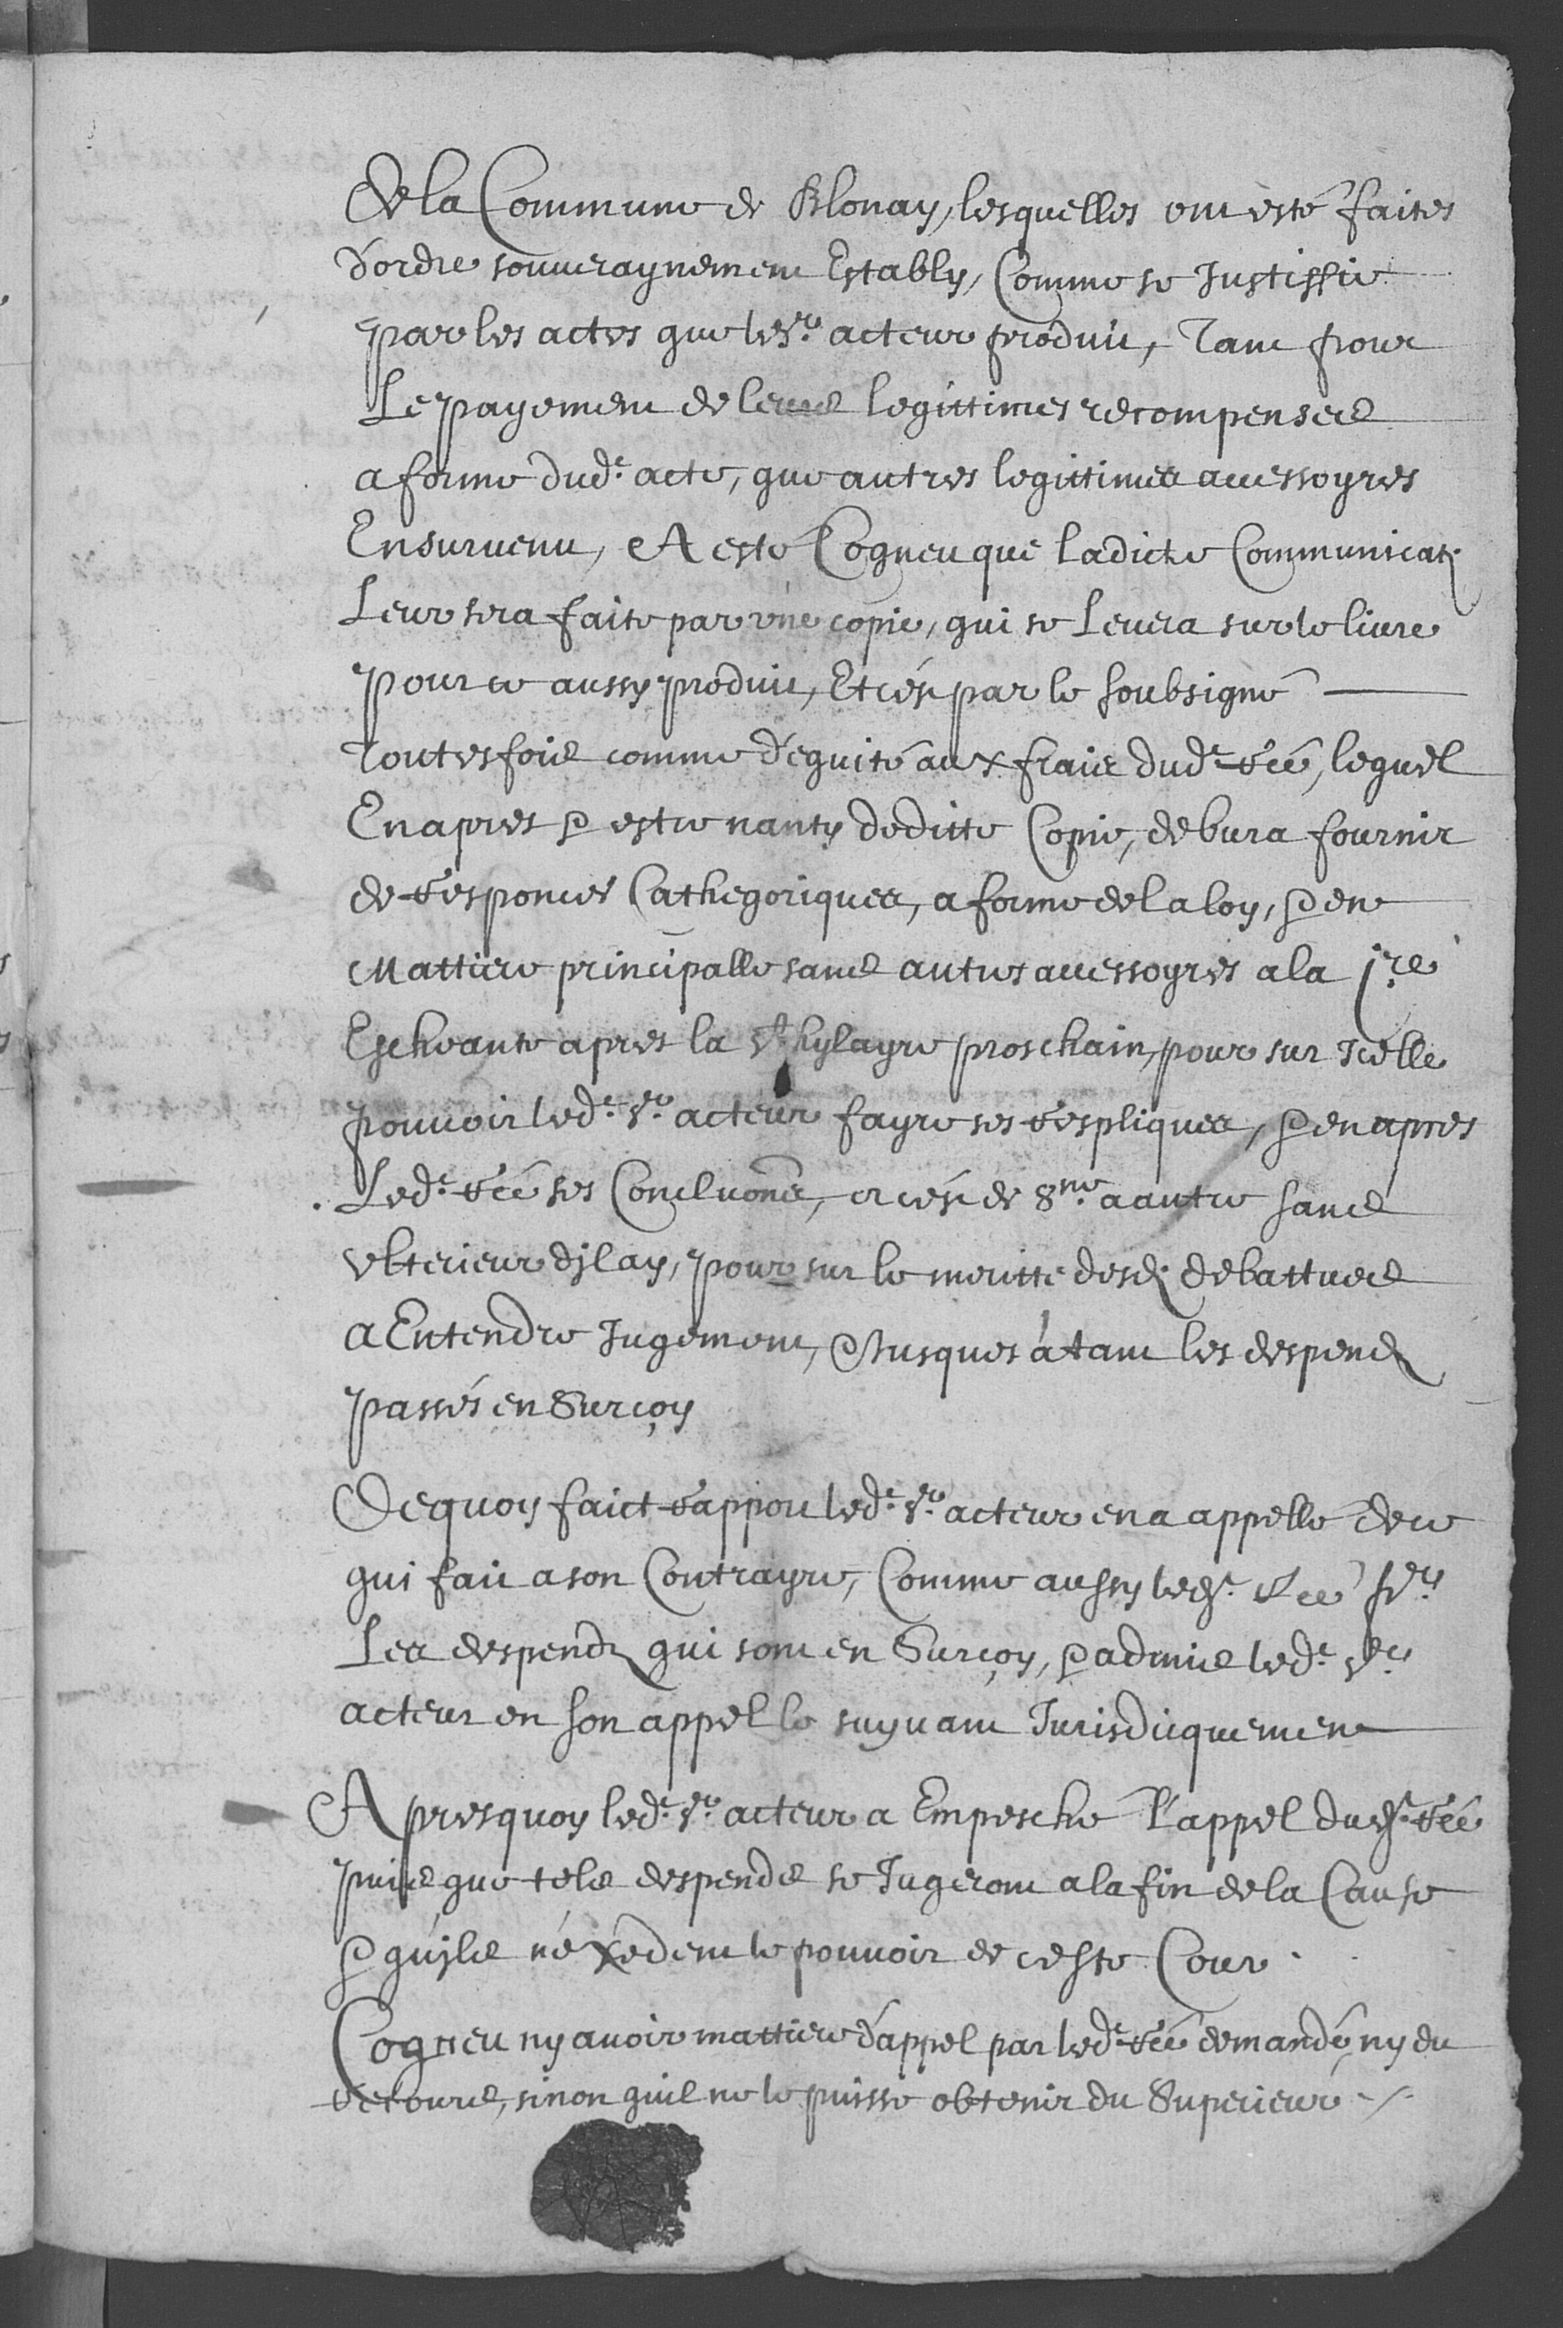 De la Commune de Blonay, lesquelles ont esté faites
d'ordre souueraynement Estably, Comme se Justiffie
par les actes que led. Sr. acteur produit, Tant pour
Le payement de leurs legittimes recompenses
a forme dud. acte, que autres legittimes accessoyres
Ensurvenu, A esté Cogneu que ladicte Communicati
Leur sera faite par une copie, qui se Leuera sur le liure
pour ce aussy produit, Et cest par le soubsigné
Toutesfois comme d'equité aux frais dud. rée, lequel
En apres & estre nanty de ditte Copie, debura fournir
de responces Cathegoriques, a forme de la loy, & en
Mattiere principalle sans autres accessoyres a la 1.re
Escheante apres la St. hylayre proschain, pour sur Icelle
pouuoir led. Sr. acteur fayre ses respliques, & en apres
Led. rée ses Concluons, et cest de 8ne. a autre sans
vlterieur dilay, pour sur le meritte desd. debattues
a Entendre Jugement, & Jusques à tant les despends
passés en Surçoy
De quoy faict rapport led. Sr. acteur en a appellé de ce
qui fait a son Contrayre, Comme aussy led. rée pr.
Les despends qui sont en Surçoy, & admis led. Sr.
acteur en son appel le suyuant Jurisdicquement
Apres quoy led. Sr. acteur a Empesché l'appel dud. rée
puis que tels despends se Jugeront a la fin de la Cause
& qu'ils n'éxèdent le pouuoir de ceste Cour.
Cogneu ny auoir mattiere d'appel par led. rée demandé, ny du
recours, sinon quil ne le puisse obtenir du Superieur